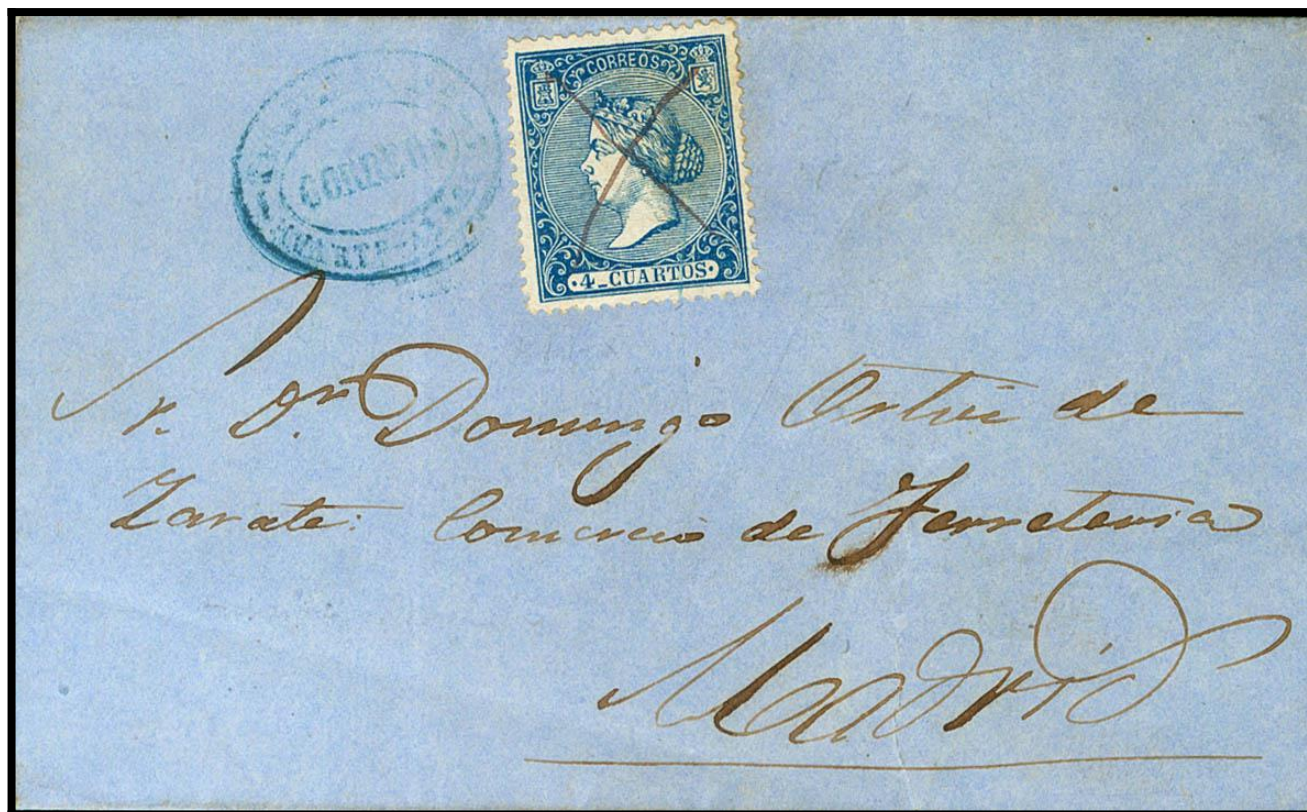 CORREOS
4_CUARTOS
Sr. Dn Domingo Ortiz de
Zarate: Comercio de Ferreteria
Madrid